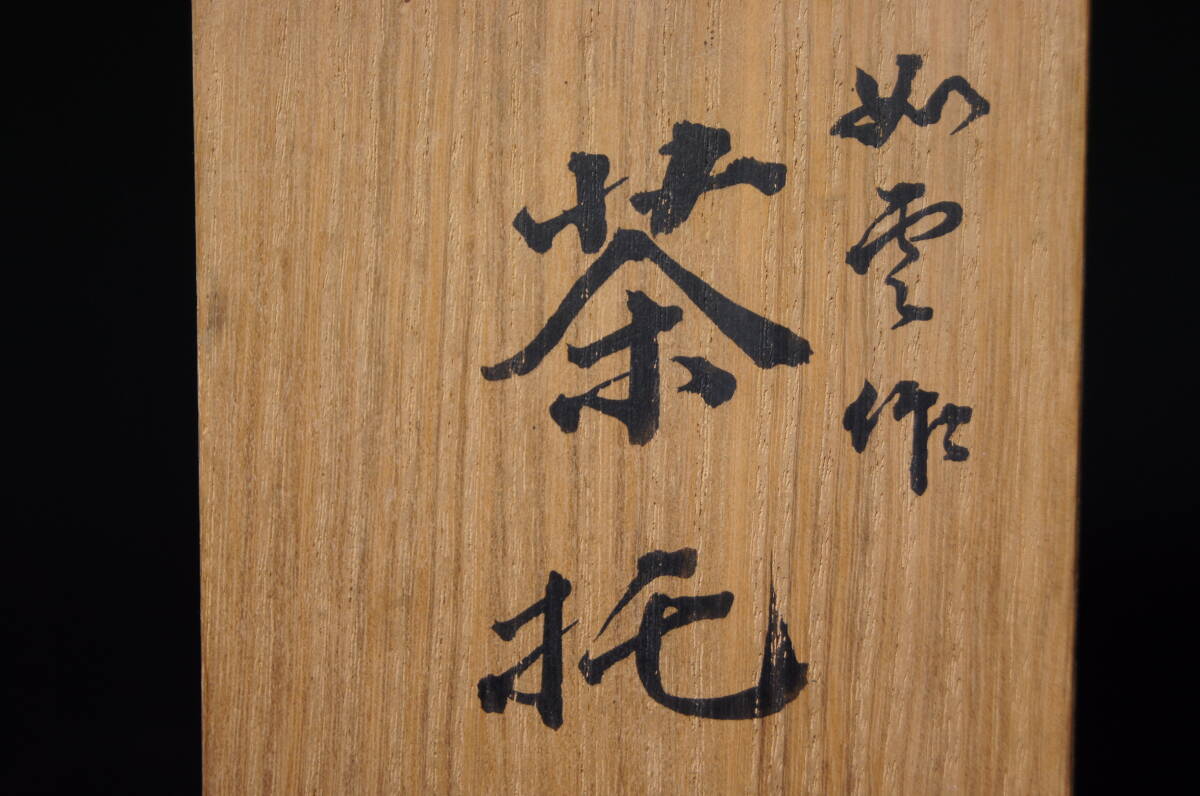 如雲作
茶托